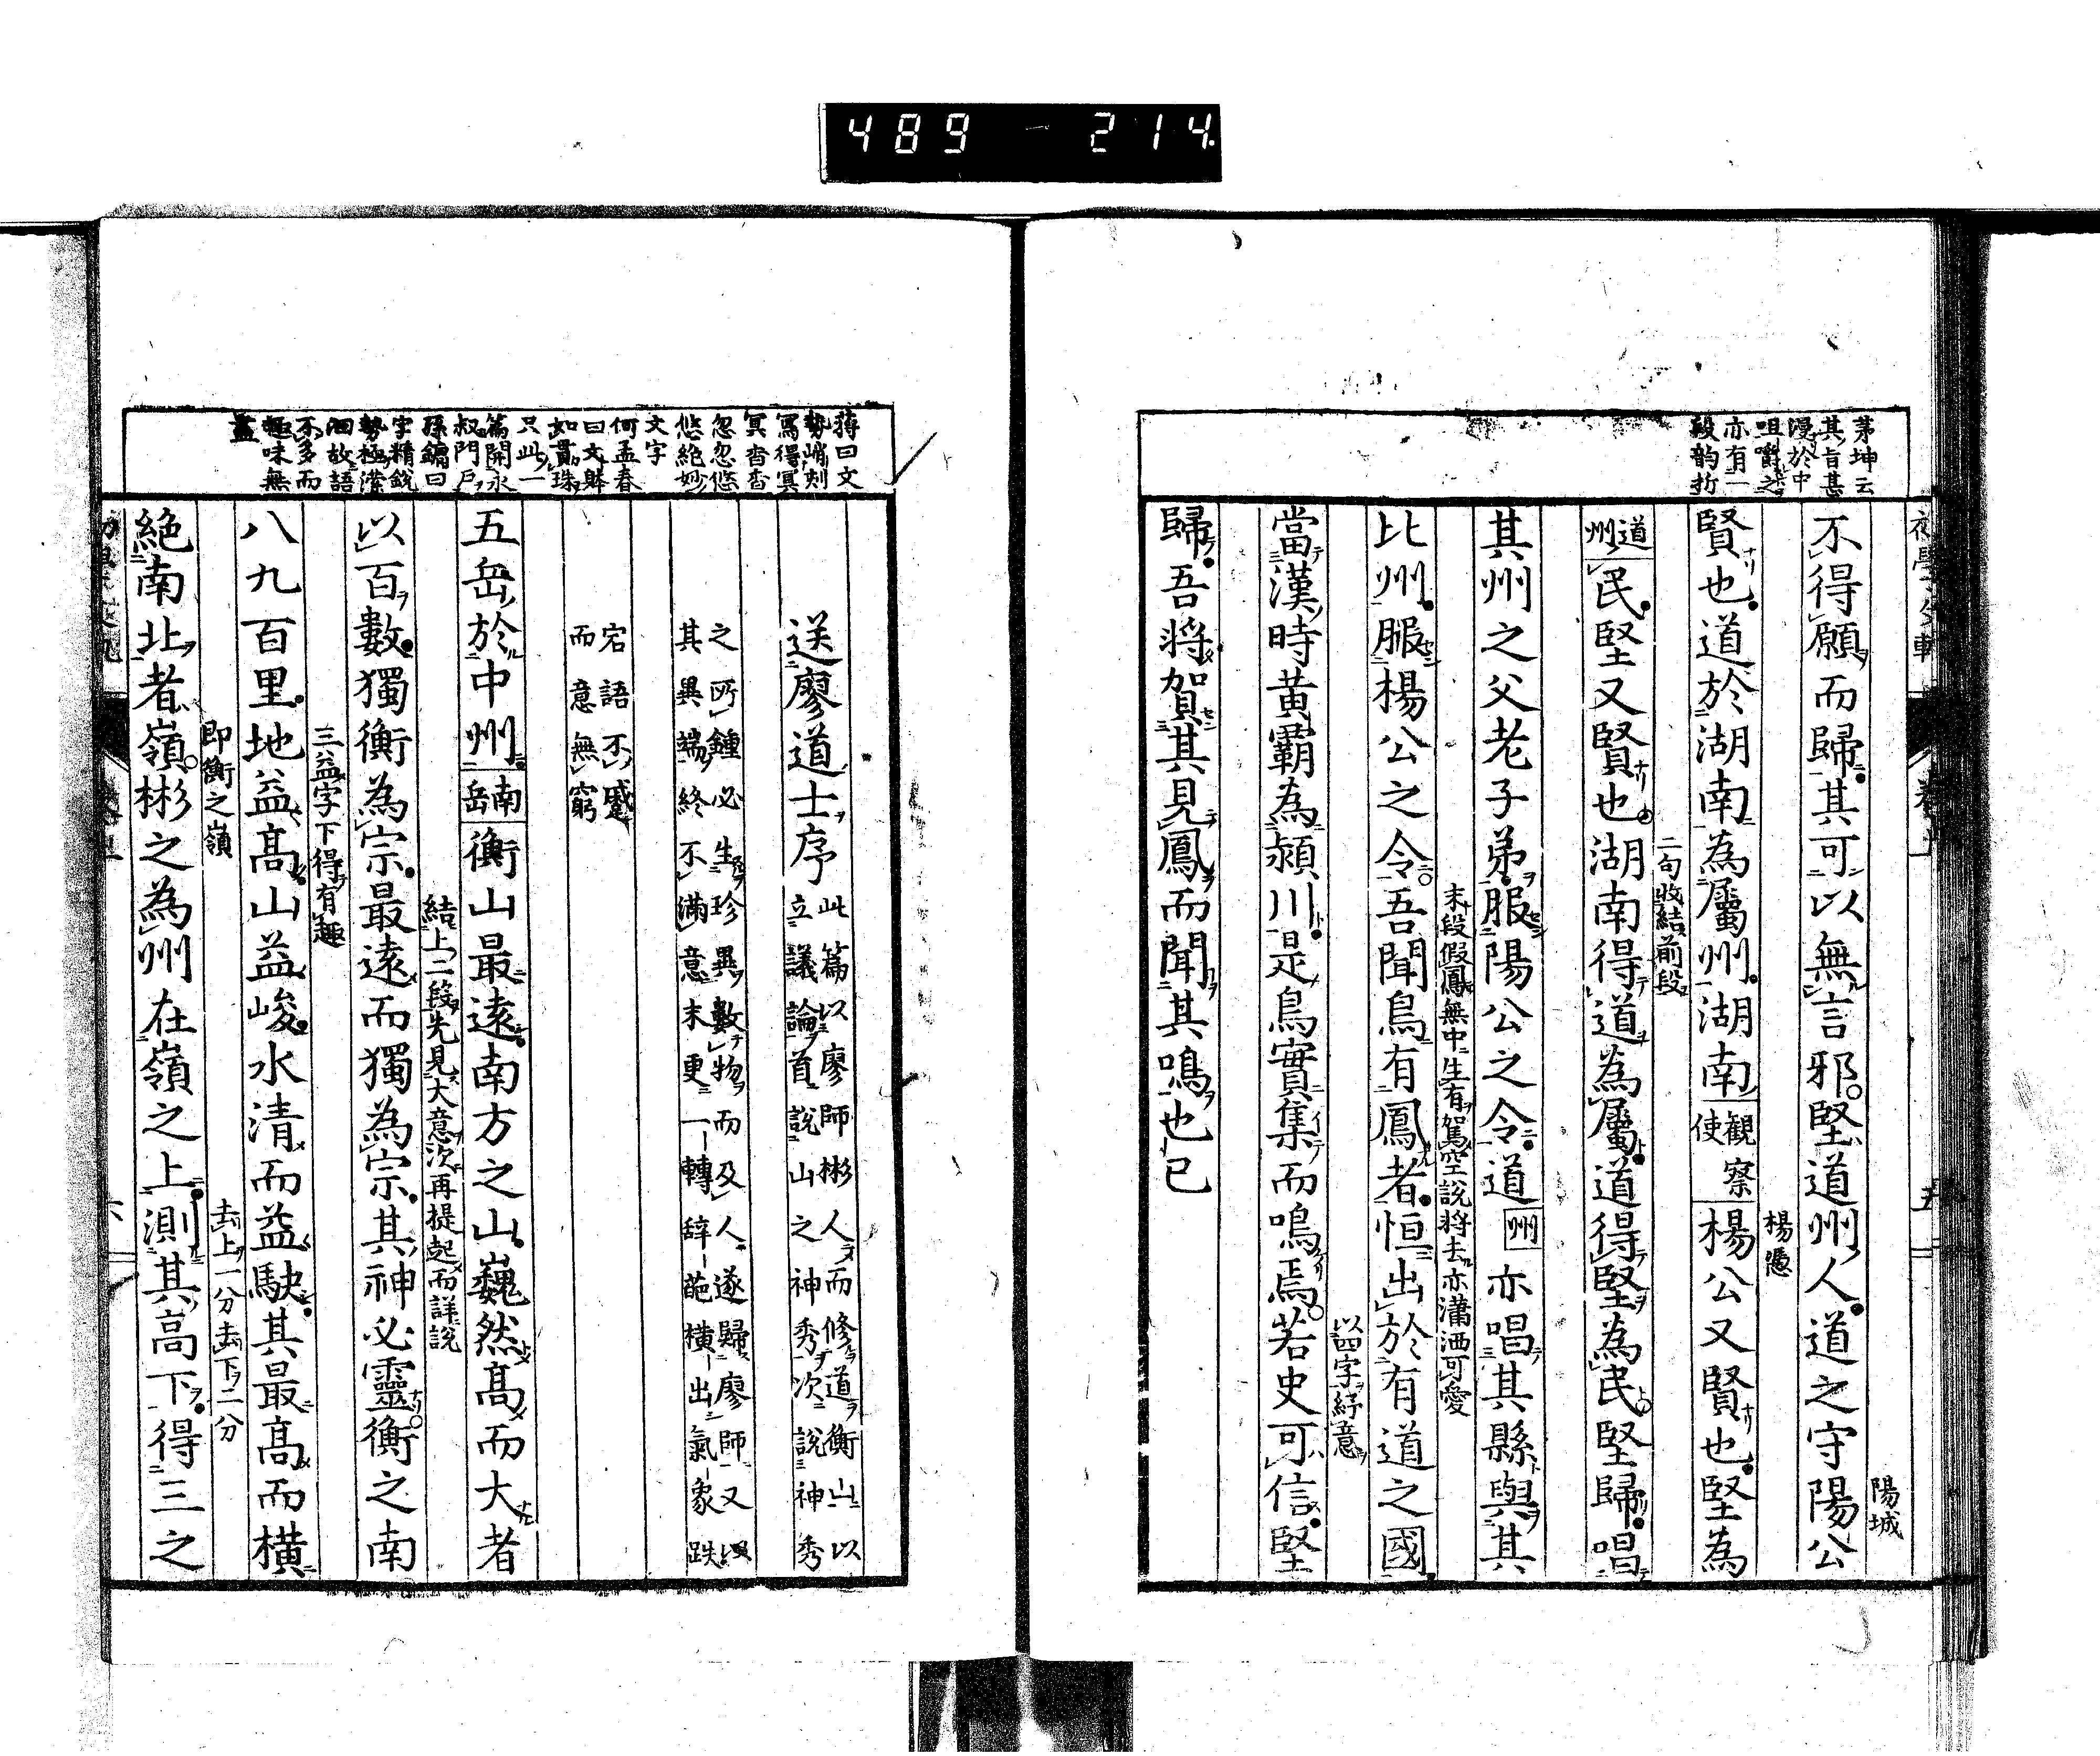 489-214.
茅坤云
其旨甚
漫於中
咀嚼之
亦有一
段韵折
陽城
不得願而歸其可以無言邪堅道州人道之守陽公
楊憑
賢也道於湖南為屬州湖南觀察使楊公又賢也堅為
二句收結前段
道州民堅又賢也湖南得道為屬道得堅為民堅歸唱
其州之父老子弟服陽公之令道州亦唱其縣與其
末段假鳳無中生有駕空説將去亦瀟洒可愛
比州服楊公之令吾聞鳥有鳳者恒出於有道之國
以四字紓意
當漢時黄霸為潁川是鳥實集而鳴焉若史可信堅
歸吾將賀其見鳳而聞其鳴也已
蒋曰文
勢峭刻
寫得冥
冥杳杳
忽忽悠
悠絶妙
文字
何孟春
曰文躰
如貫珠
只此一
篇開永
叔門戶
孫鑛曰
字精銳
勢極濚
洄故語
不多而
趣味無
盡
送廖道士序
此篇以廖師彬人而修道衡山以
立議論首説山之神秀次説神秀
之所鍾必生珍異數物而及人遂歸廖師又以
其異端終不滿意末更一轉辞葩横出氣象跌
宕語不蹙
而意無窮
五岳於中州南岳衡山最遠南方之山巍然高而大者
結上二段先見大意次再提起而詳説
以百數獨衡為宗最遠而獨為宗其神必靈衡之南
三益字下得有趣
八九百里地益高山益峻水清而益駛其最高而横
即衡之嶺
去上一分去下二分
絶南北者嶺彬之為州在嶺之上測其高下得三之
六